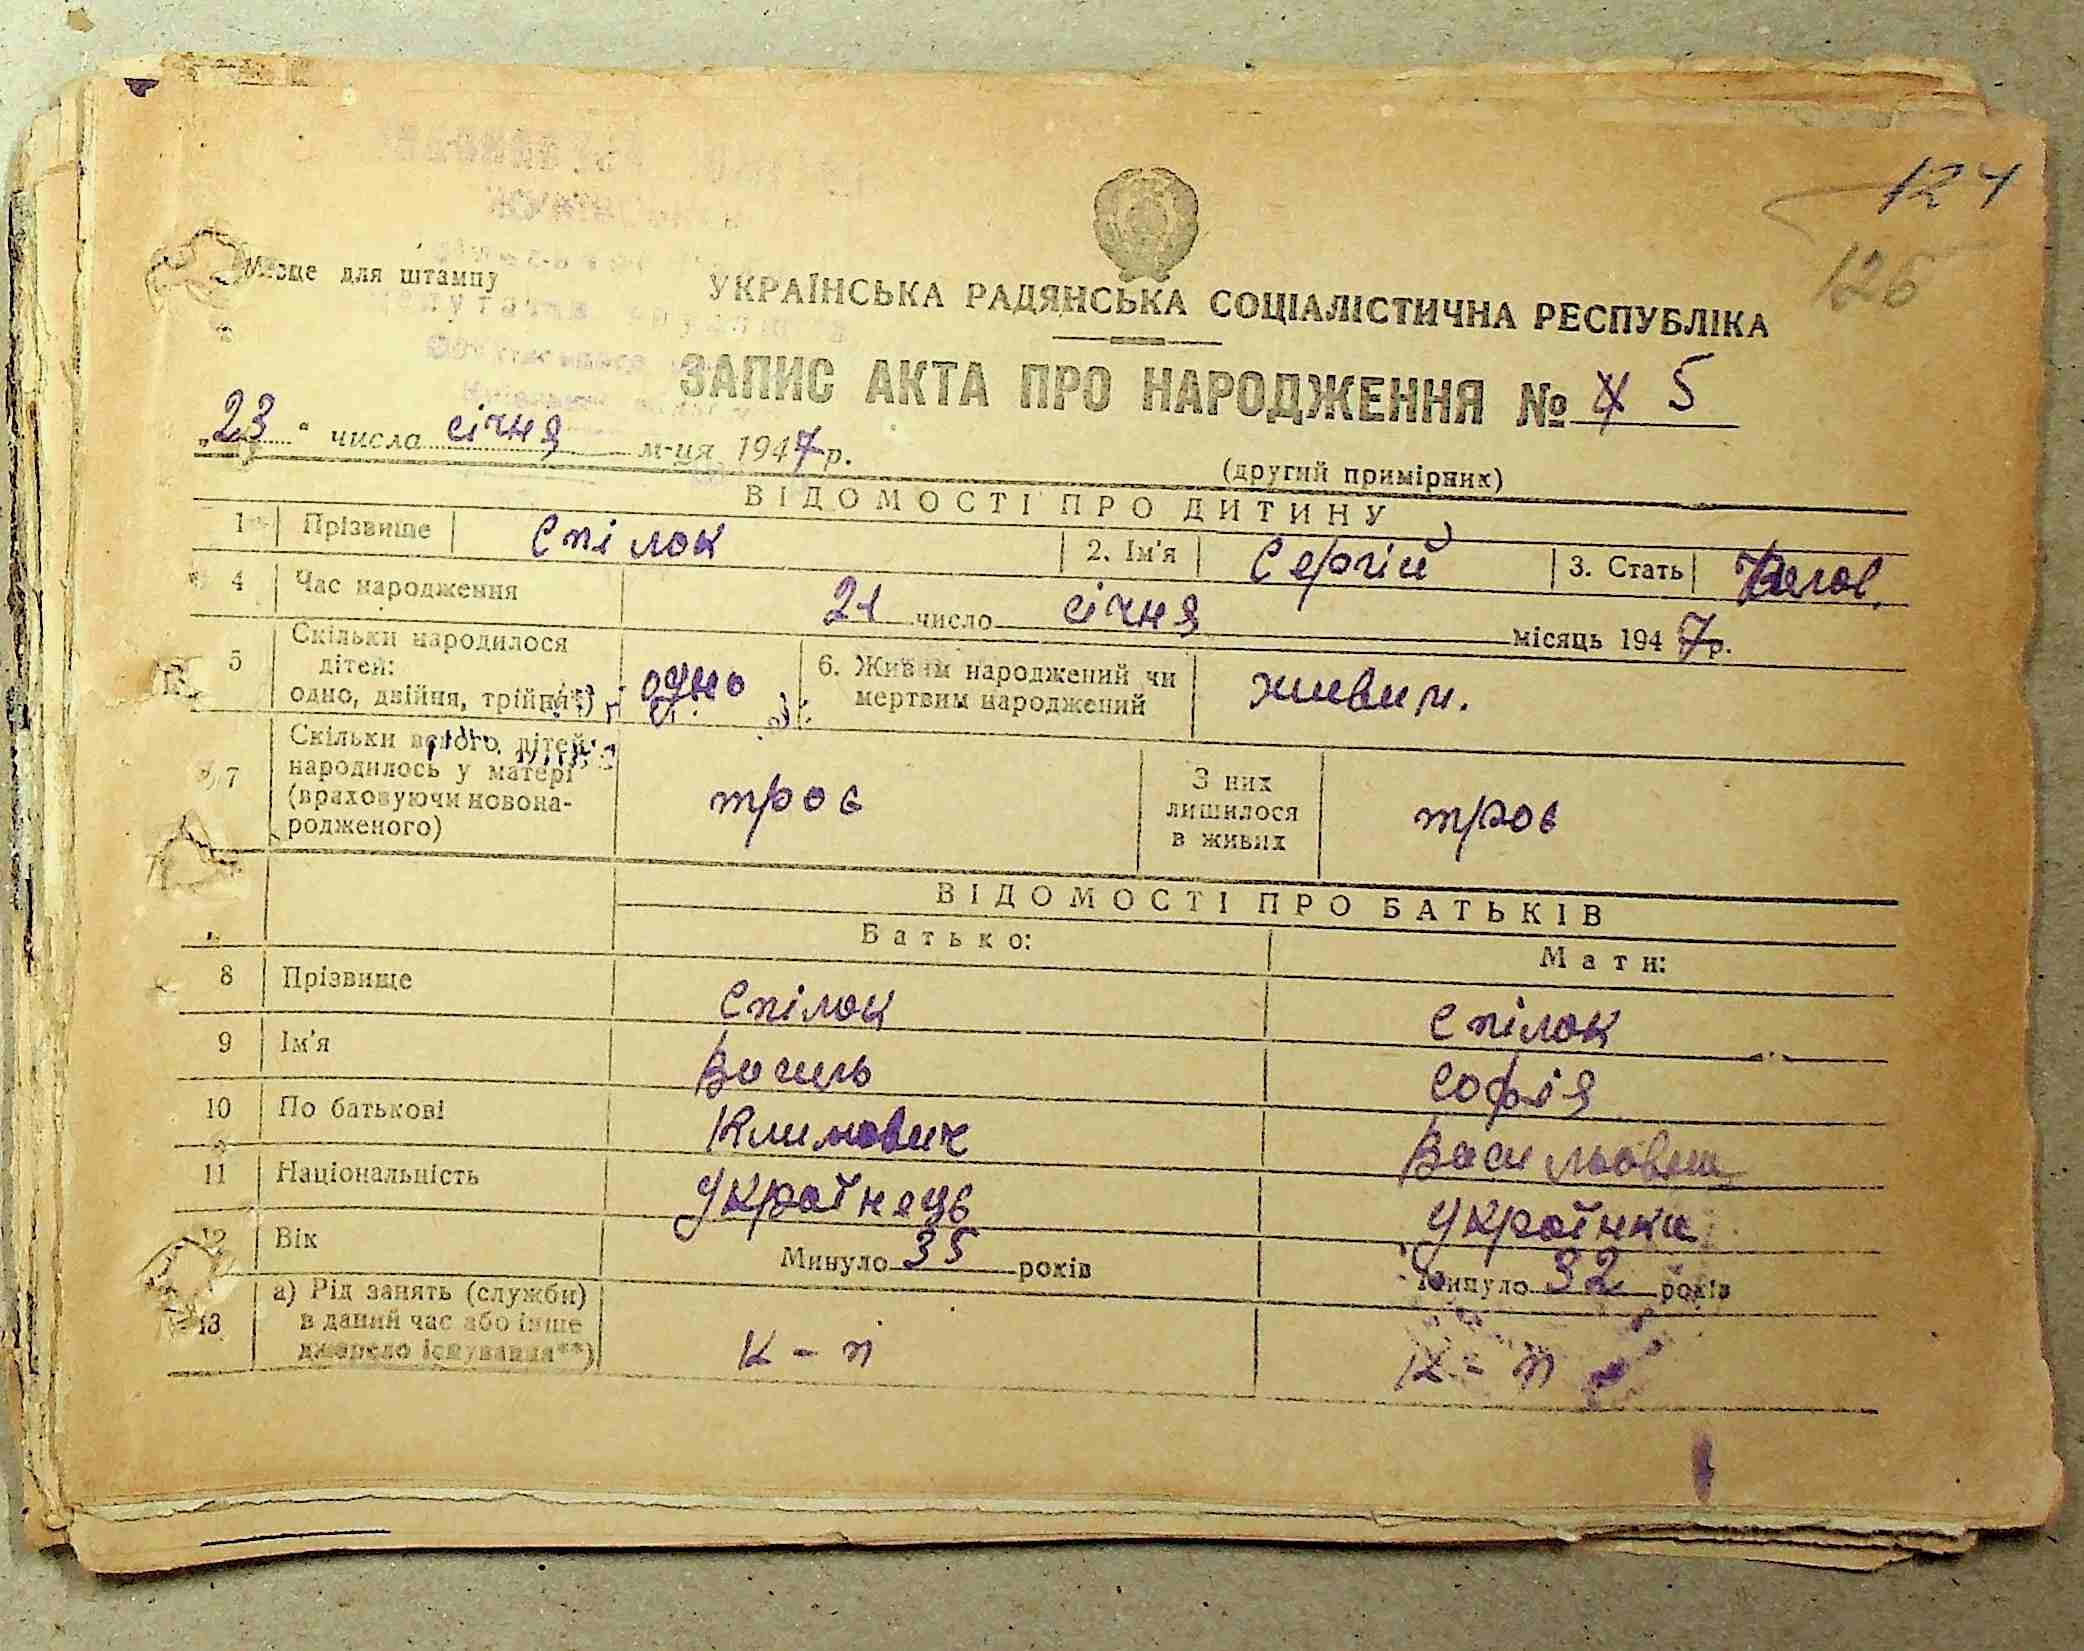 124
126
Місце для штампу
УКРАЇНСЬКА РАДЯНСЬКА СОЦІАЛІСТИЧНА РЕСПУБЛІКА
ЗАПИС АКТА ПРО НАРОДЖЕННЯ № 5
„23" числа січня м-ця 1947 р.
(другий примірник)
ВІДОМОСТІ ПРО ДИТИНУ
1 Прізвище Спілок 2. Ім'я Сергій 3. Стать
4 Час народження 21 число січня місяць 1947 р.
5 Скільки народилося дітей: одно, двійня, трійня*) одно 6. Живим народжений чи мертвим народжений живим.
7 Скільки всього дітей народилось у матері (враховуючи новонародженого) троє З них лишилося в живих троє
ВІДОМОСТІ ПРО БАТЬКІВ
Батько: Мати:
8 Прізвище Спілок Спілок
9 Ім'я Василь Софія
10 По батькові Климович
11 Національність Українець Українка
12 Вік Минуло 35 років Минуло 32 років
13 а) Рід занять (служби) в даний час або інше джерело існування**) к-п к-п